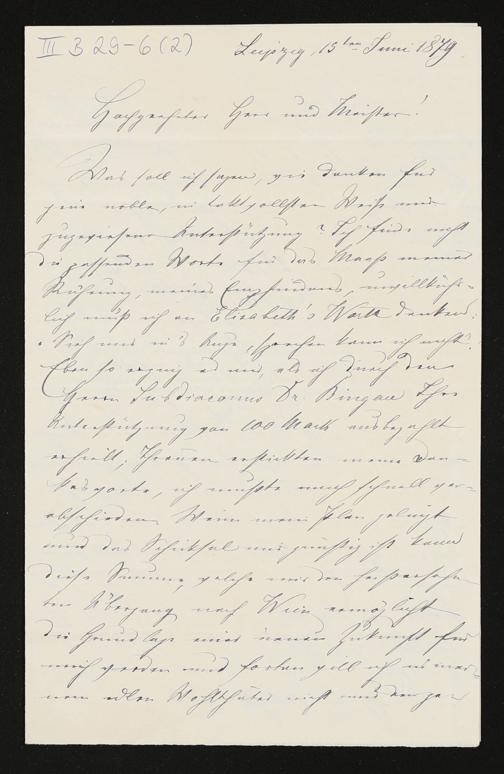 III B 29-6 (2)
Leipzig, 15ten Juni 1879
Hochgeehrter Herr und Meister!
Was soll ich sagen, wie danken für
jene noble, in taktvollster Weise mir
zugewiesene Unterstützung? Ich finde nicht
die passenden Worte für das Maaß meiner
Rührung, meines Empfindens, unwillkühr-
lich muß ich an Elisabeth's Worte denken:
"Sieh mir in's Auge, sprechen kann ich nicht".
Eben so erging es mir, als ich durch den
Herrn Subdiaconus Dr. Ihre
Unterstützung von 100 Mark ausbezahlt
erhielt; Thränen erstickten meine Dan-
kesworte, ich mußte mich schnell ver-
abschieden. Wenn mein Plan gelingt
und das Schicksal mir günstig ist kann
diese Summe, welche mir den
ten Übergang nach Wien ermöglicht
die Grundlage einer neuen Zukunft für
mich werden und fortan will ich in mei-
nem edlen Wohlthäter nicht nur den